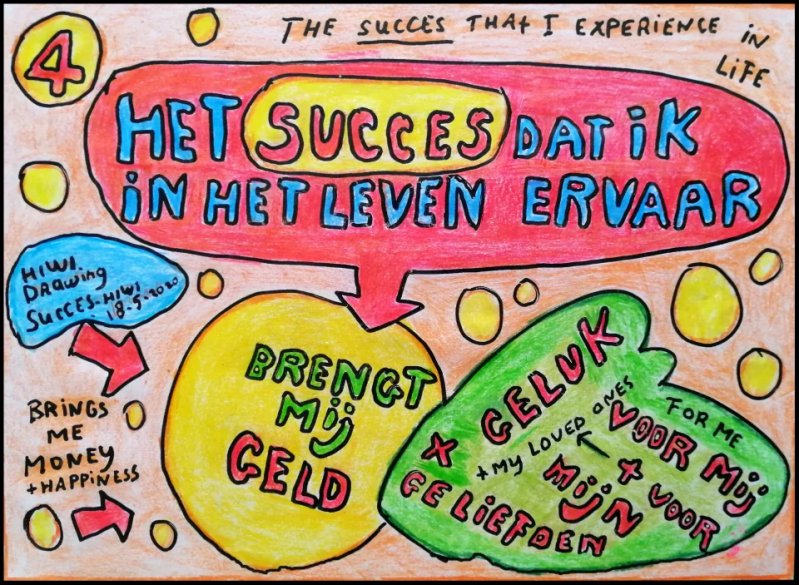 4
THE SUCCES THAT I EXPERIENCE IN
LIFE
HET SUCCES DAT iK
iN HET LEVEN ERVAAR
HIWI
DRAwing
SUCCES-HIWI
18.5.2020
BRINGS
ME
MONEY
+HAPPINESS
BRENGT
Mij
GELD
+ GELUK
VOOR Mij
FOR ME
+ MY LOVED ONES
+ VOOR
MijN
GELIEFDEN